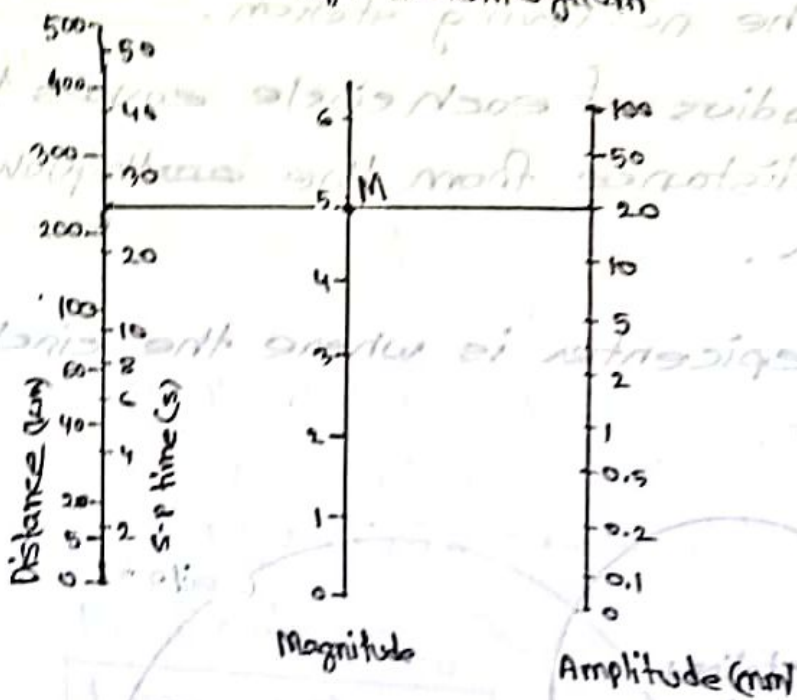 500
400
300
200
100
60
40
20
5
0
Distance (km)
50
40
30
20
10
8
6
4
2
S-P time (s)
6
5 M
4
3
2
1
0
Magnitude
100
50
20
10
5
2
1
0.5
0.2
0.1
0
Amplitude (mm)